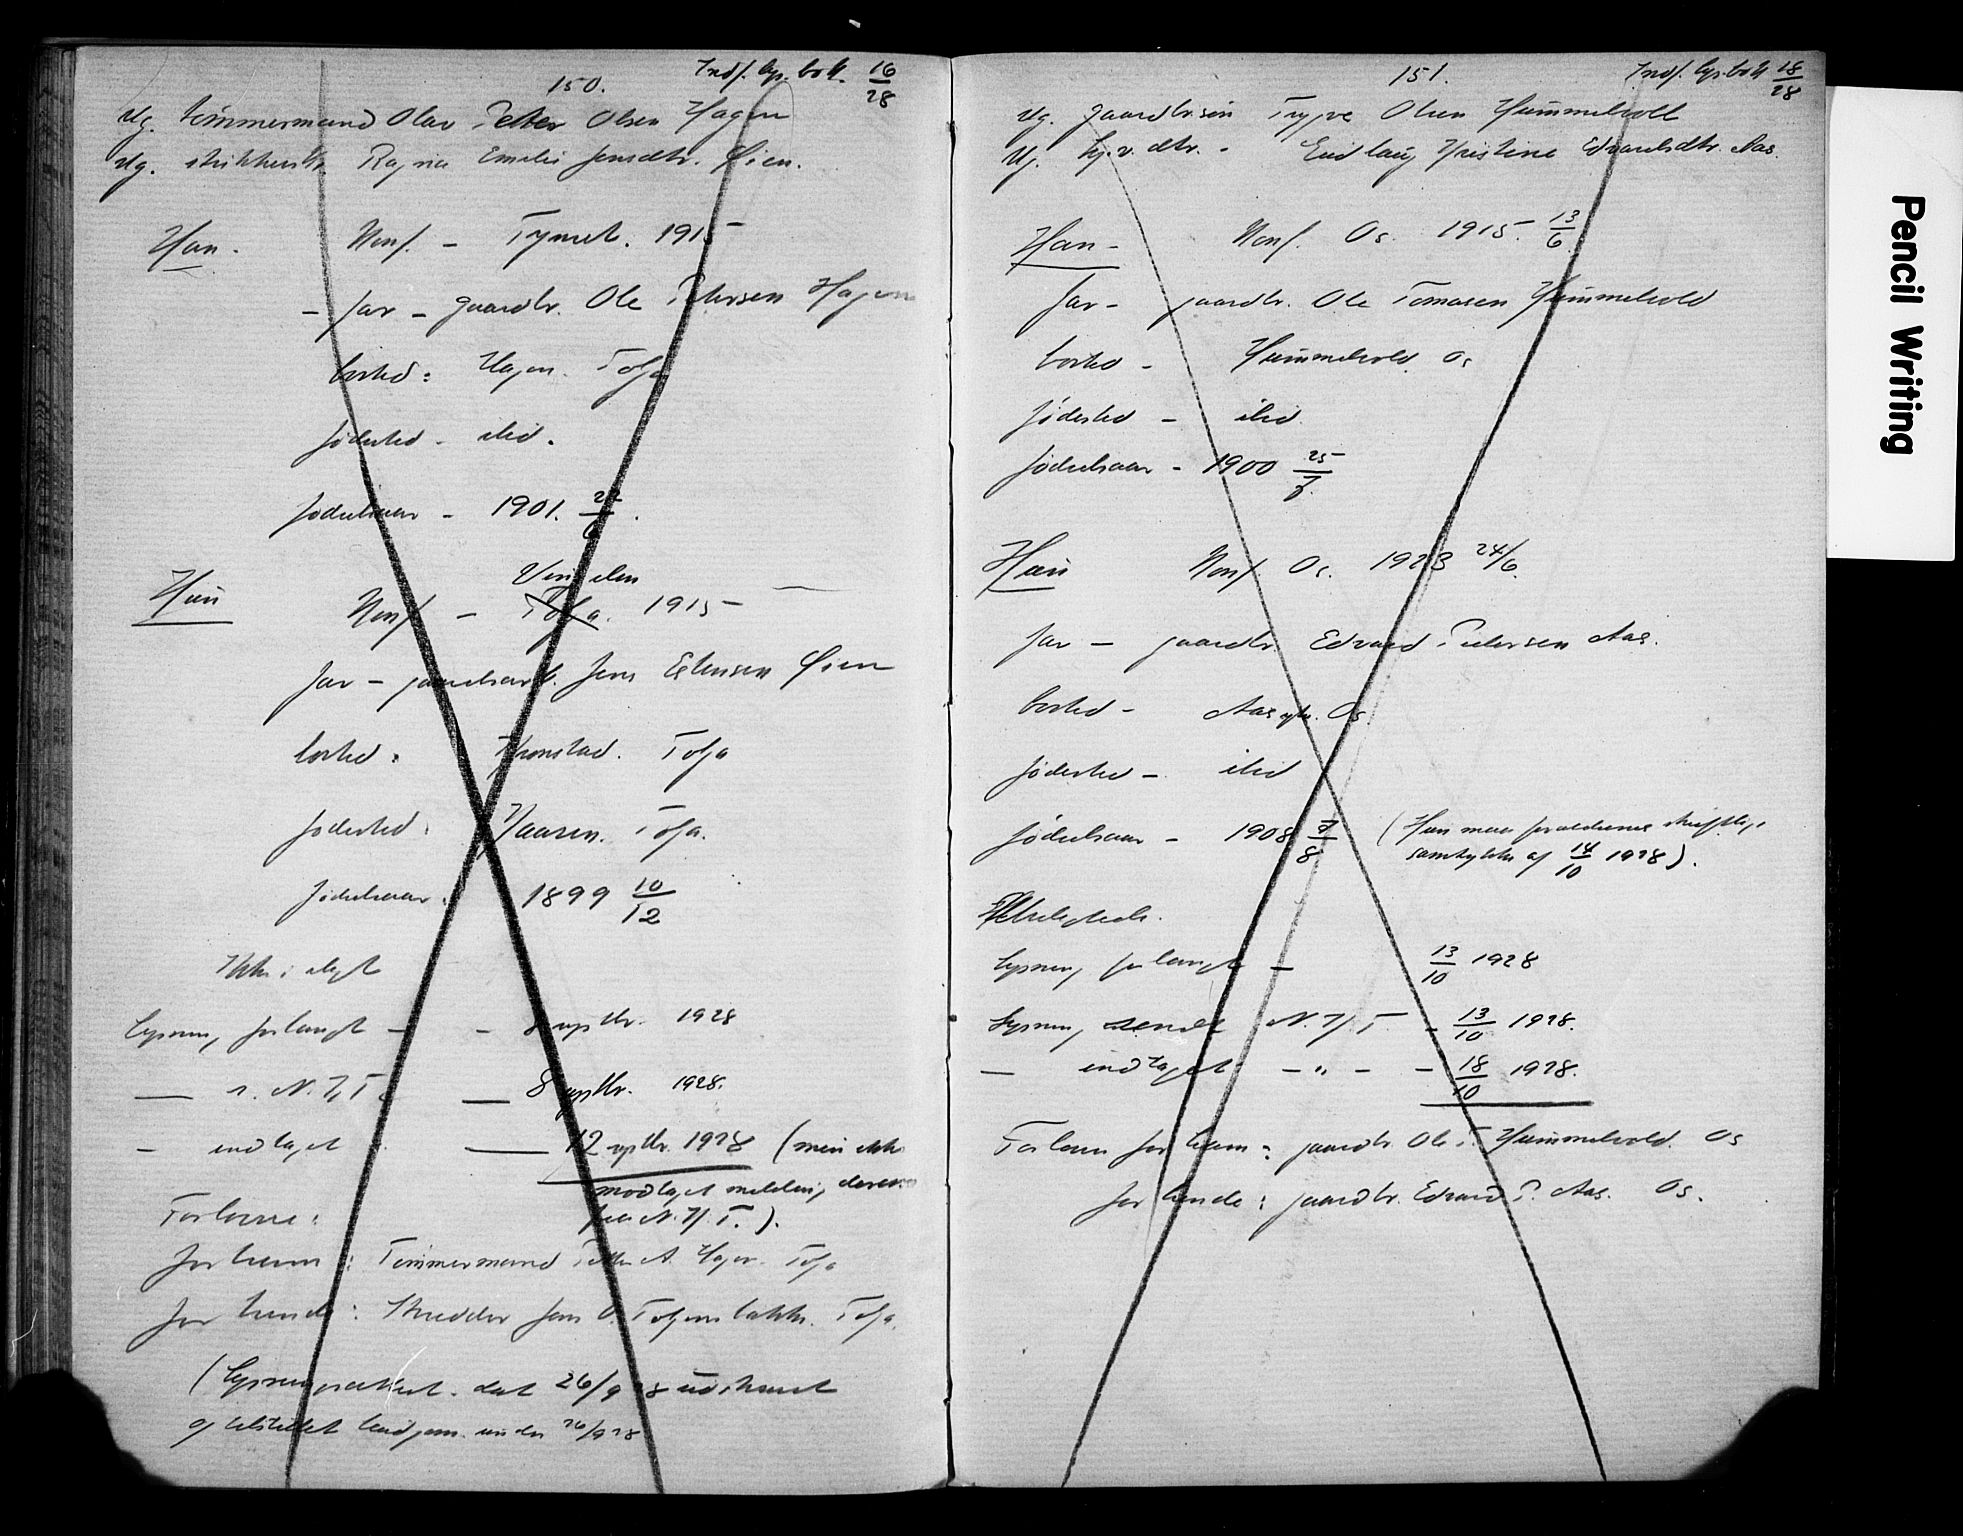 150.
Indf. lys. bok 16/28
Ug. tømmermand Olav Petter Olsen Hagen
Ug. Ragna Emelie Jensdtr. Øien.
Han.
Konf. - Tynset. 1915
- far - gaardbr. Ole Petersen Hagen
bosted: Hagen. Tolga
fødested - ibid.
fødselsaar - 1901.
Hun
Vingelen
Konf - Tolga. 1915 -
far - Jens Estensen Øien
bosted: Kronstad. Tolga
fødested: Vaasen. Tolga.
fødselsaar: 1899 10/12
Ikke i slegt
Lysning forlangt - - 8 septbr. 1928
— s. N. K. T. — 8 septbr. 1928.
- indtaget — 12 septbr. 1928 (men ikke
modtaget melding derom
fra N. K. T.).
Forlovere:
for ham: Tømmermand Petter A. Hagen. Tolga
for hende: Skredder Jens O. Tolgensbakken. Tolga.
(Lysningsattest. dat 26/9 28 utskrevet
og tilstillet brudgom. under 26/9 28
151.
Indf. lys. bok 18/28
Ug. gaardbrsøn Trygve Olsen Hummelvoll
Ug. gbr. dtr. - Gudlaug Kristine Edvardsdtr. Aas.
Han -
Konf. Os. 1915. 13/6
far - gaardbr. Ole Tomasen Hummelvold
bosted - Hummelvold. Os
fødested - ibid.
fødselsaar - 1900 25/7.
Hun
Konf. Os. 1923 24/6.
far - gaardbr. Edvard Pedersen Aas.
bosted - Aas Os.
fødested - ibid
fødselsaar - 1908 8 (Hun med forældrenes skriftlige
samtykke af 14/10 1928).
Lysning forlangt - 13/10 1928
Lysning sendt N. K. T. - 13/10 1928.
— indtaget - " - - 18/10 1928.
Forlover for ham: gaardbr Ole T. Hummelvold. Os
for hende: gaardbr. Edvard P. Aas. Os.
Pencil Writing